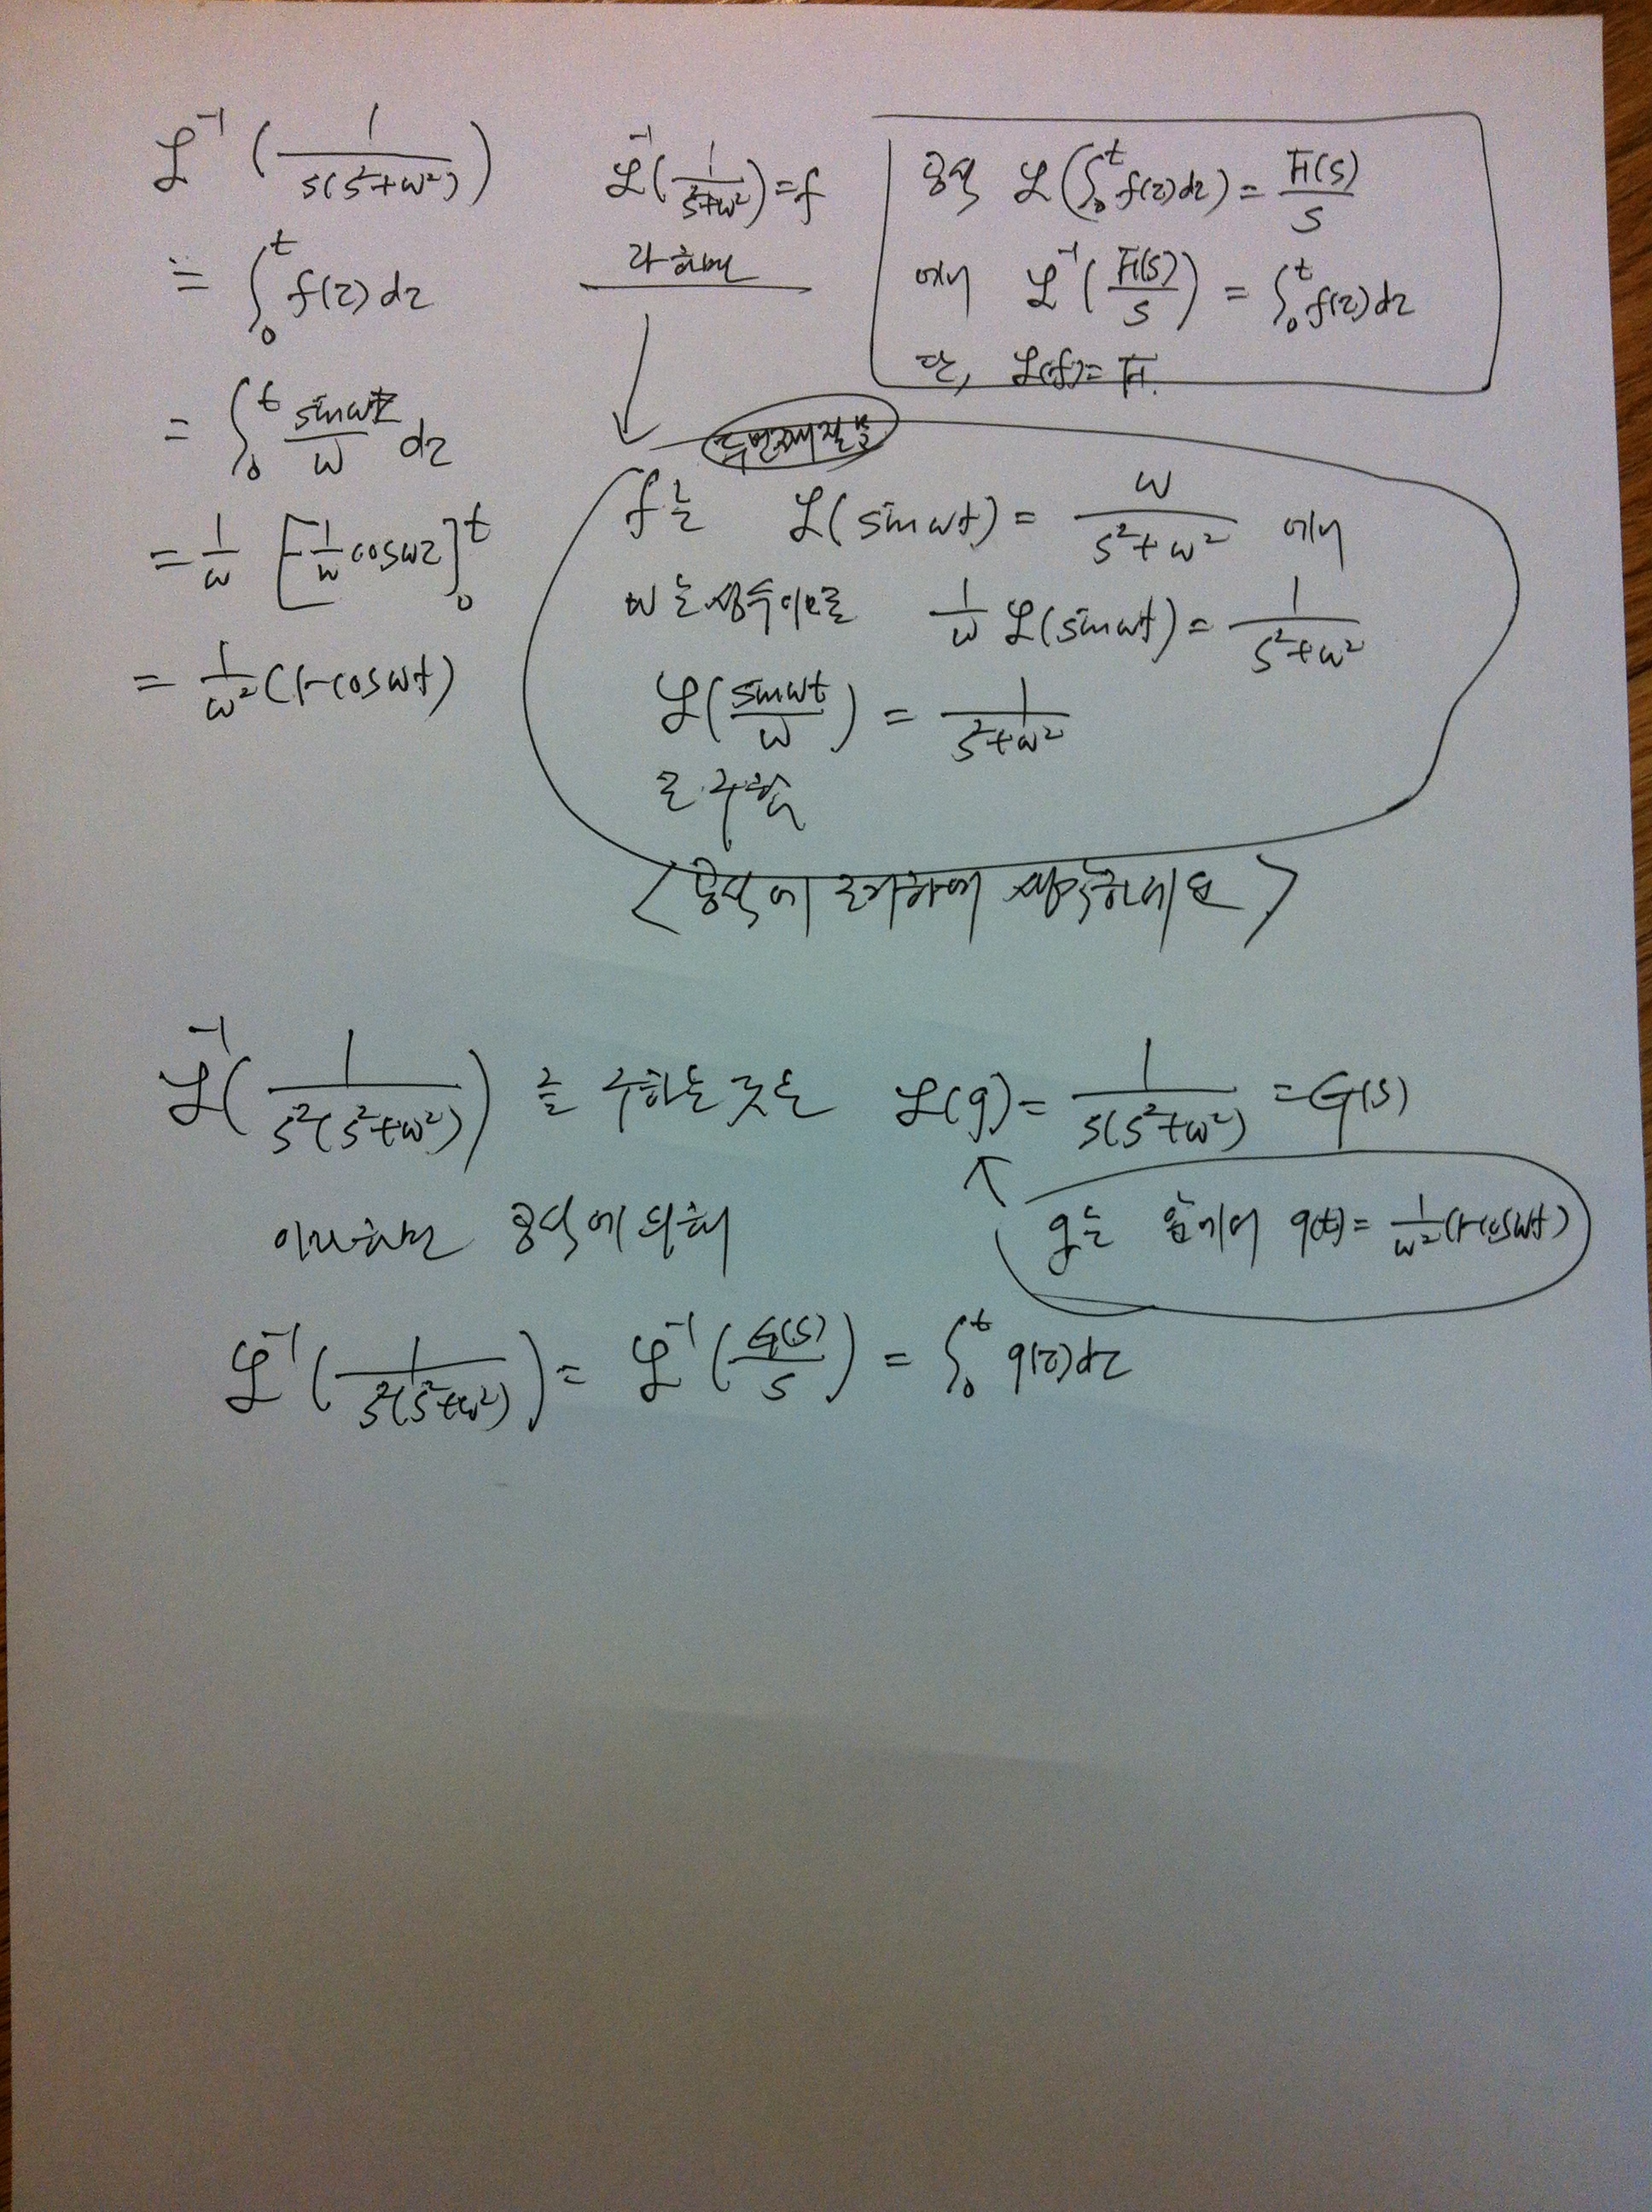 ℒ⁻¹(1/(s(s²+w²)))
= ∫₀ᵗ f(z)dz
= ∫₀ᵗ (sinwz/w) dz
= 1/w [-1/w coswz]₀ᵗ
= 1/w² (1-coswt)
ℒ⁻¹(1/(s²+w²)) = f
라 하면
공식 ℒ(∫₀ᵗ f(z)dz) = F(s)/s
에서 ℒ⁻¹(F(s)/s) = ∫₀ᵗ f(z)dz
단, ℒ(f) = F.
두번째 질문
f는 ℒ(sinwt) = w/(s²+w²) 에서
w는 상수이므로 1/w ℒ(sinwt) = 1/(s²+w²)
ℒ(sinwt/w) = 1/(s²+w²)
로 구함
ℒ⁻¹(1/(s²(s²+w²))) 를 구하는 것은 ℒ(g) = 1/(s(s²+w²)) = G(s)
이라하면 공식에 의해
g는 앞에서 g(t) = 1/w² (1-coswt)
ℒ⁻¹(1/(s²(s²+w²))) = ℒ⁻¹(G(s)/s) = ∫₀ᵗ g(z)dz